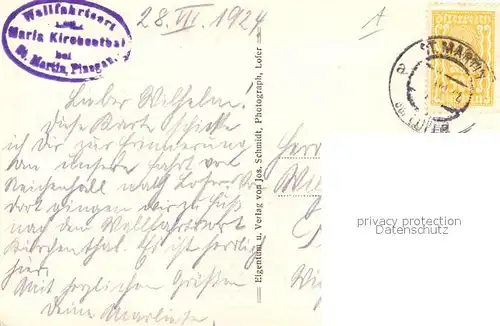 Wallfahrtsort
Maria Kirchenthal
bei
St. Martin, Pinzgau
28. VII. 1924
A
ST. MARTIN
a
bei LOFER
Lieber Wilhelm!
Diese Karte schicke
ich Dir zur Erinnerung
an unsere Fahrt von
Reichenhall nach Lofer. Von
dort gingen wir zu Fuß
nach dem Wallfahrtsort
Kirchenthal. Es ist herrlich
hier.
Mit herzlichen Grüßen
Deine
Eigentum u. Verlag von Jos. Schmidt, Photograph, Lofer
Herr
privacy protection
Datenschutz